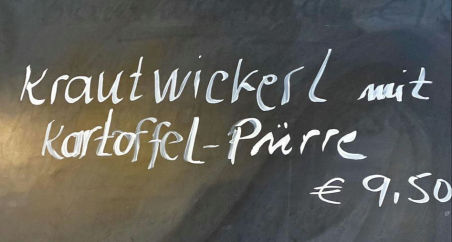 Krautwickerl mit
Kartoffel-Pürre
€ 9,50